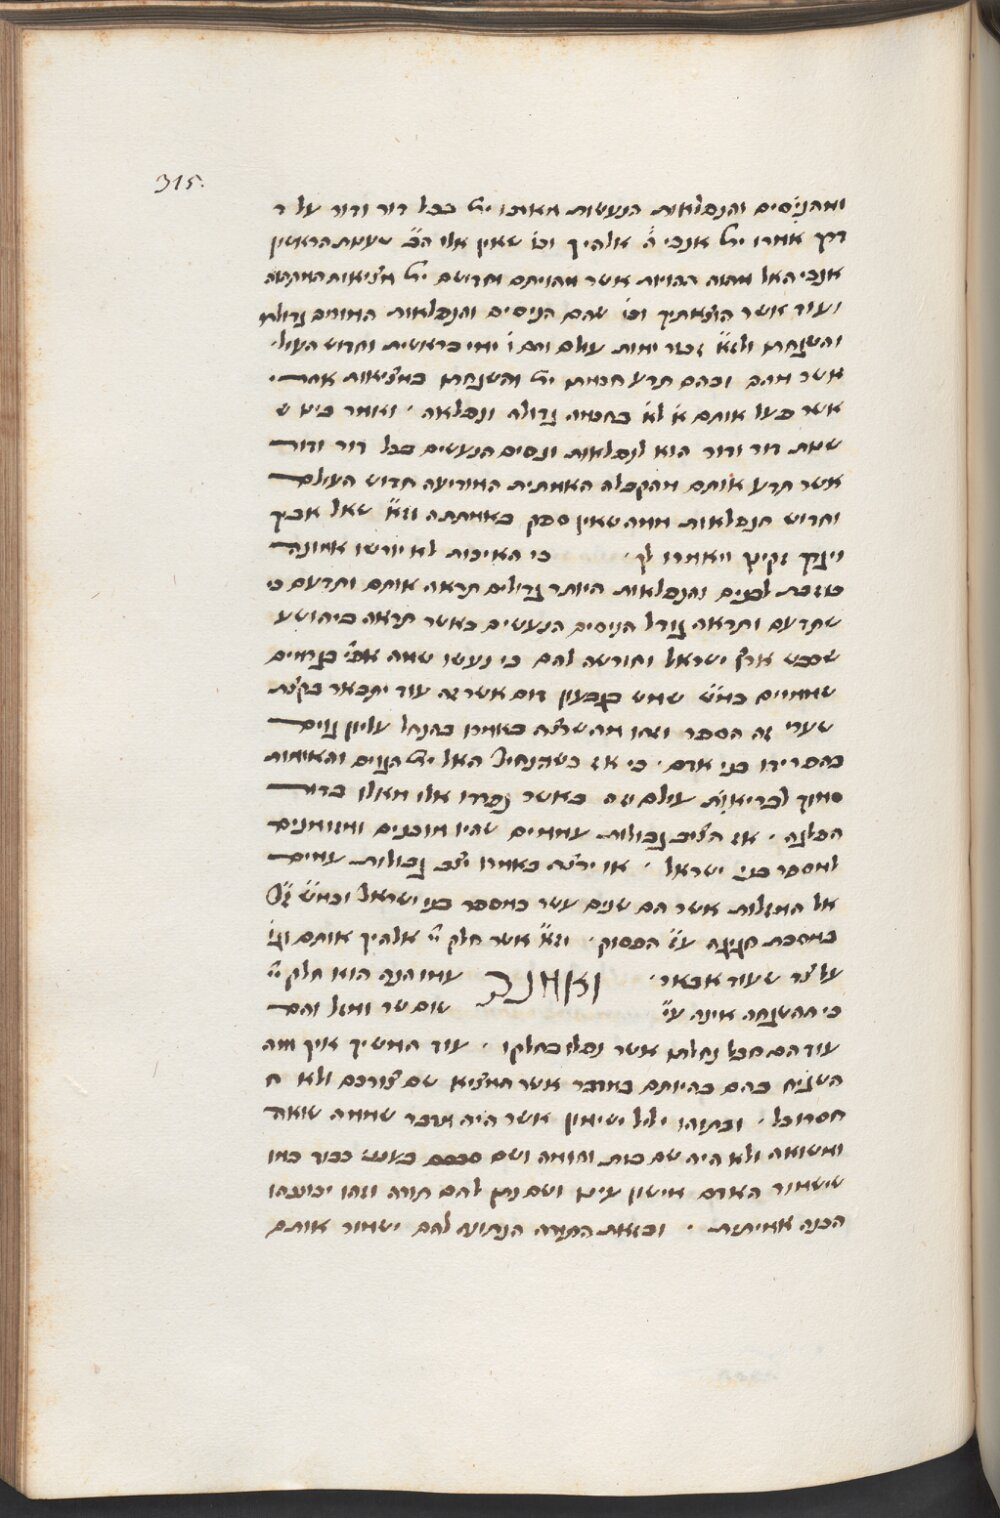 315.
ומהניסים והנפלאות הנעשות מאתו ית׳ בכל דור ודור על ד
דרך אמרו ית׳ אנכי ה׳ אלהיך וכו׳ שאין אלו הב׳ שעמת הראשון
אנכי האל מהוה ההויות אשר מהויתם וחדושם ית׳ מציאות
ועוד אשר הוצאתיך וכו׳ שהם הניסים והנפלאות המורים גדולת
והשגחתו ולז״א זכור ימות עולם והם ו׳ ימי בראשית וחדוש העול׳
אשר מהם ובהם תדע חכמתו ית׳ והשגחתו במציאות
אשר פעל אותם לא בחכמה גדולה ונפלאה · ואומר בינו ש
שנות דור ודור הוא לנפלאות ונסים הנעשים בכל דור ודור
אשר תדע אותם מהקבלה האמתית המודיעה חדוש העולם
וחדוש הנפלאות ממה שאין ספק באמתתה וז״א שאל אביך
ויגדך זקיניך ויאמרו לך · כי האיכות לא יורשו אמונה
כוזבת לבנים והנפלאות היותר גדולים תראה אותם ותדעם כי
שתדעם ותראה גודל הניסים הנעשים כאשר תראה ביהושע
שכבש ארץ ישראל והורשה להם כי נעשו שמה גרמיים
שמימיים כמ״ש שמש בגבעון דום אשר זה עוד יתבאר בקצת
שערי זה הספר וזהו מה שרצה באמרו בהנחל עליון גוים
בהפרידו בני אדם · כי אז כשהנחיל האל ית׳ הגוים והאומות
סמוך לבריאת עולם זה כאשר נפרדו אלו מאלו בדור
הפלגה · אז הציב גבולות עממים שהיו מוכנים ומזומנים
למספר בני ישראל · או ירצה באמרו יצב גבולות עמים
אל המזלות אשר הם שנים עשר כמספר בני ישראל וכמ״ש ז״ל
במסכת חגיגה ע״ז הפסוק · וז״א אשר חלק י״י אלהיך אותם וגו׳
על צד שעוד אבאר · ואמנם עמו הנה הוא חלק י״י
כי ההשגחה אינה ע״י שום שר ומזל והם
עוד הם חבל נחלתו אשר נפלו בחלקו · עוד המשיך איך היה
השגיח בהם בהיותם במדבר אשר המציא שם צורכם ולא ח
חסרו כל · ובתוהו ילל ישימון אשר היה מדבר שממה שואה
ומשואה ולא היה שם בית וחומה ושם סבבם בענני כבוד כמו
שישמור האדם אישון עינו ושם נתן להם תורה וזהו יבוננהו
הבנה אמיתית · ובזאת התורה הנתונה להם ישמור אותם